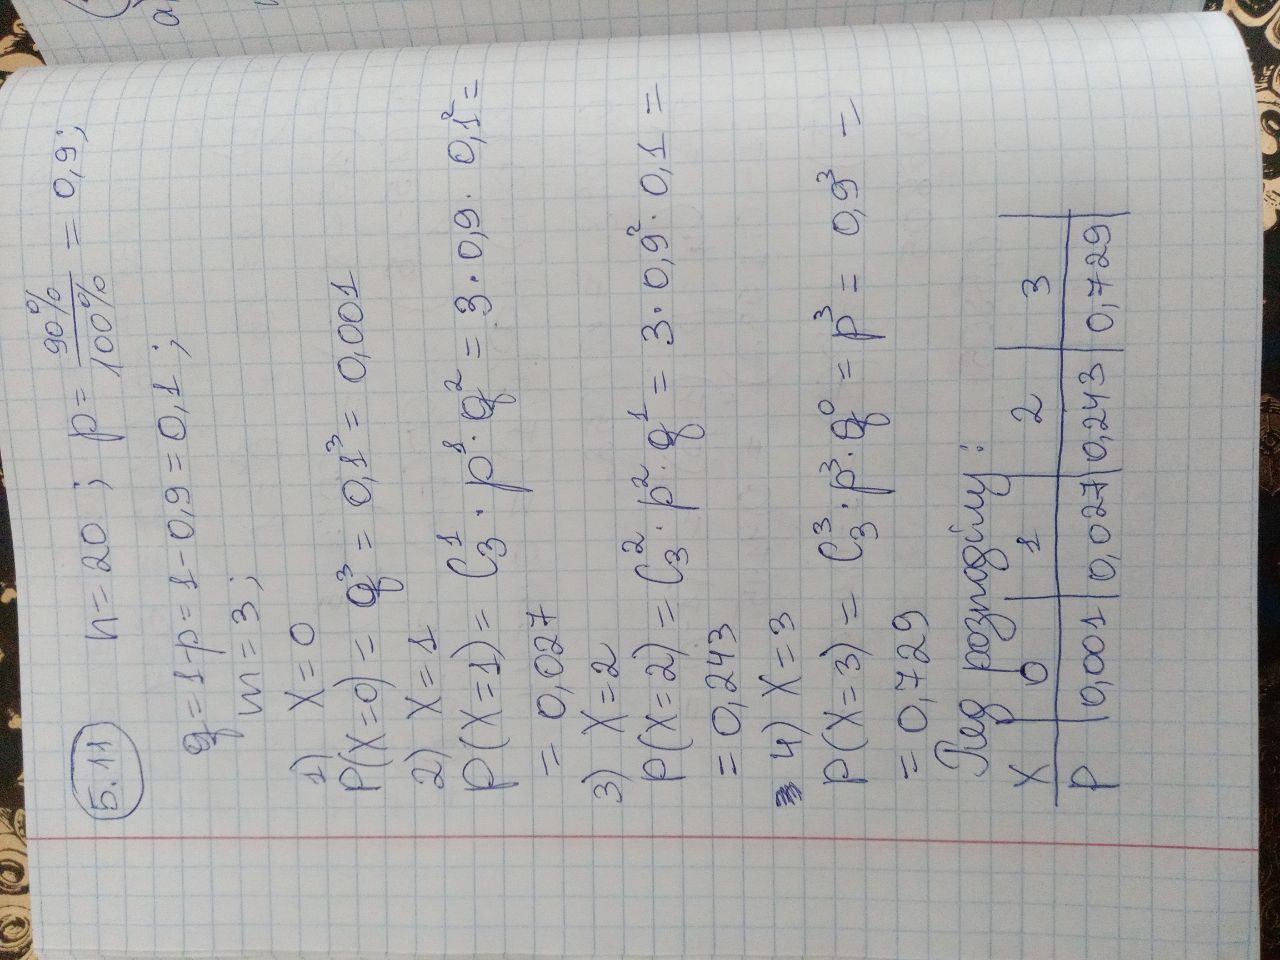 5.11 n=20 ; p= 90%/100% = 0,9;
q=1-p=1-0,9=0,1 ;
m=3;
1) X=0
P(X=0) = q³ = 0,1³ = 0,001
2) X=1
P(X=1)= C₃¹ · p¹ · q² = 3 · 0,9 · 0,1² =
= 0,027
3) X=2
P(X=2) = C₃² · p² · q¹ = 3 · 0,9² · 0,1 =
= 0,243
4) X=3
P(X=3) = C₃³ · p³ · q⁰ = p³ = 0,9³ =
= 0,729
Ряд розподілу:
X 0 1 2 3
P 0,001 0,027 0,243 0,729
a)